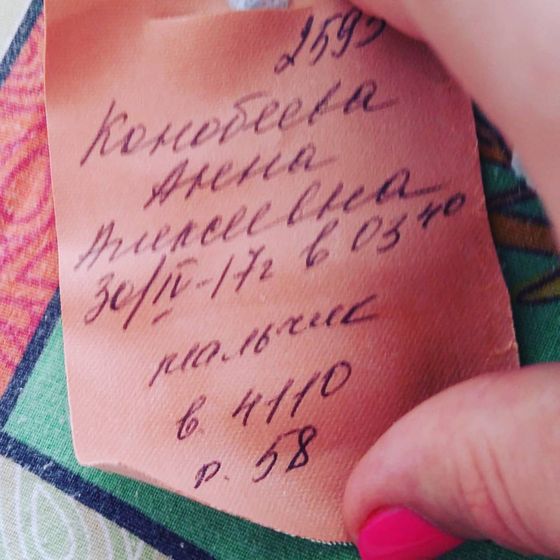 2595
Конобеева
Анна
Алексеевна
30/IV-17г в 03 40
мальчик
в. 4110
р. 58